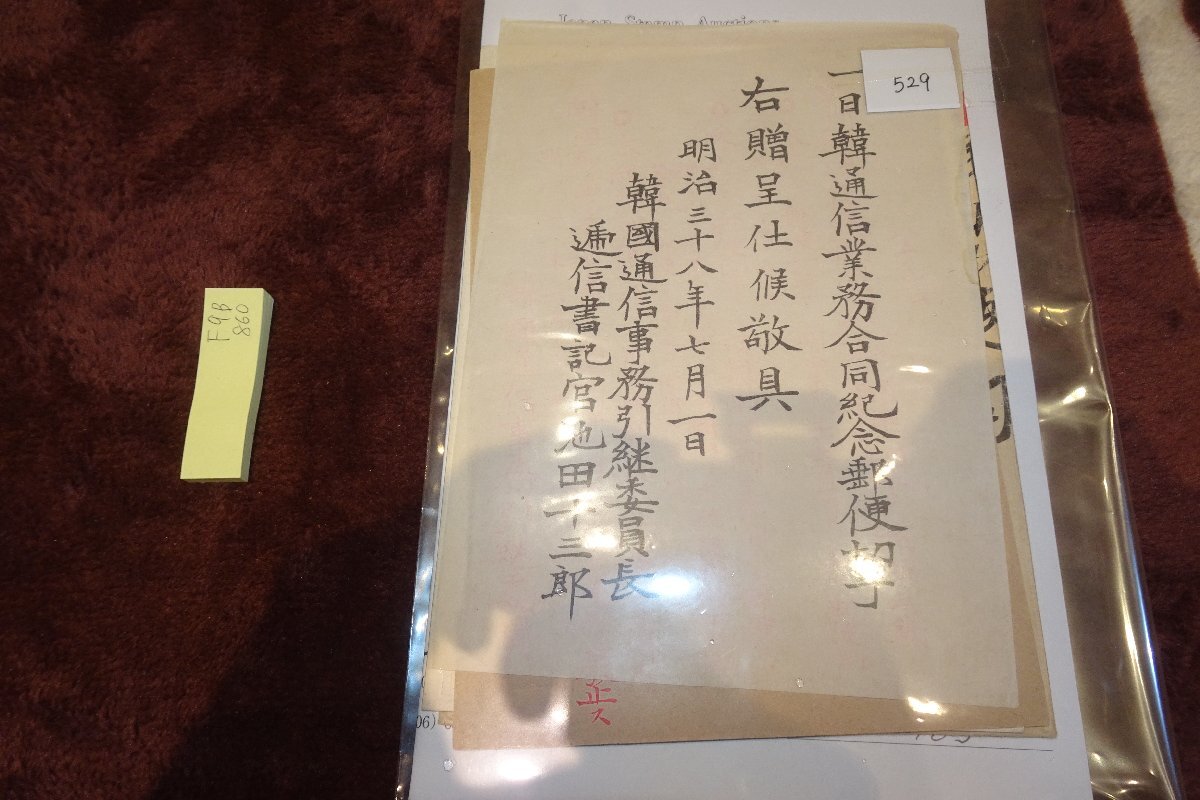 Japan Stamp Auctions
529
一日韓通信業務合同紀念郵便切手
右贈呈仕候敬具
明治三十八年七月一日
韓國通信事務引継委員長
逓信書記官池田十三郎
F9B
860